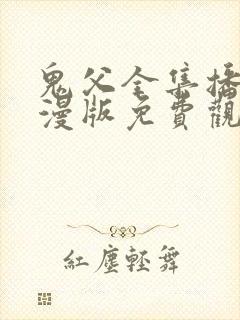 鬼父全集播
漫版免費觀
紅塵輕舞